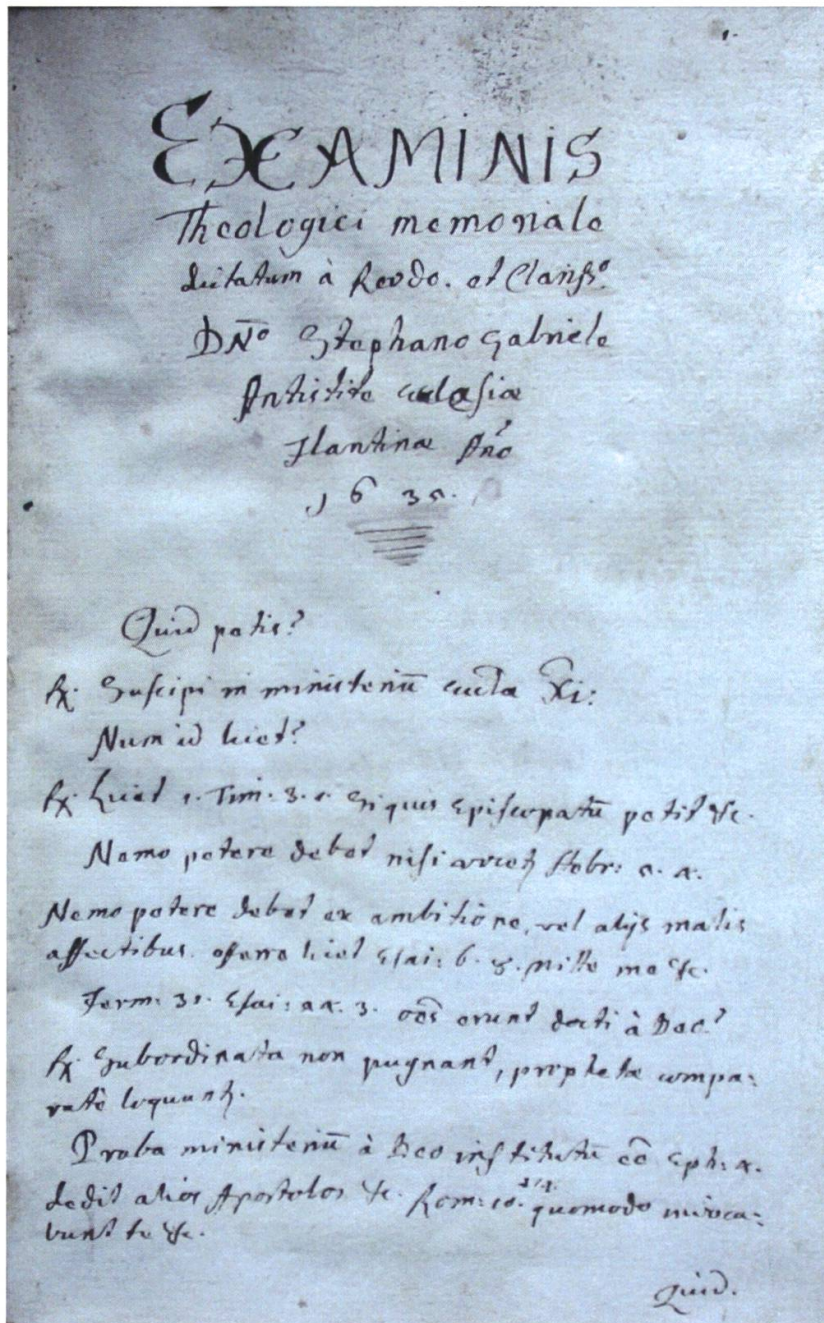 1.
EXAMINIS
Theologici memoriale
dictatum à Revdo. et Clariss:o
DN̄o Stephano Gabriele
Antistite ecclesiæ
Ilantinæ Año
163
Quid petis?
℞. Suscipi in ministeriū eccl̄ā X̄i:
Num id licet?
℞. Licet 1. Tim: 3. 1. Si quis Episcopatū petit &c.
Nemo petere debet nisi vocet⁹ Hebr: 5. 4.
Nemo petere debet ex ambitione, vel alijs malis
affectibus. offerre licet Esai: 6. 8. mitte me &c.
Jerem: 31. Esai: 54. 3. oēs erunt docti à Deo?
℞. Subordinata non pugnant, prophetæ compa:
ratè loquunt⁹.
Proba ministeriū à Deo institutū eē Eph: 4.
dedit alios Apostolos &c. Rom: 10. 14. quomodo invoca:
bunt te &c.
Quid.